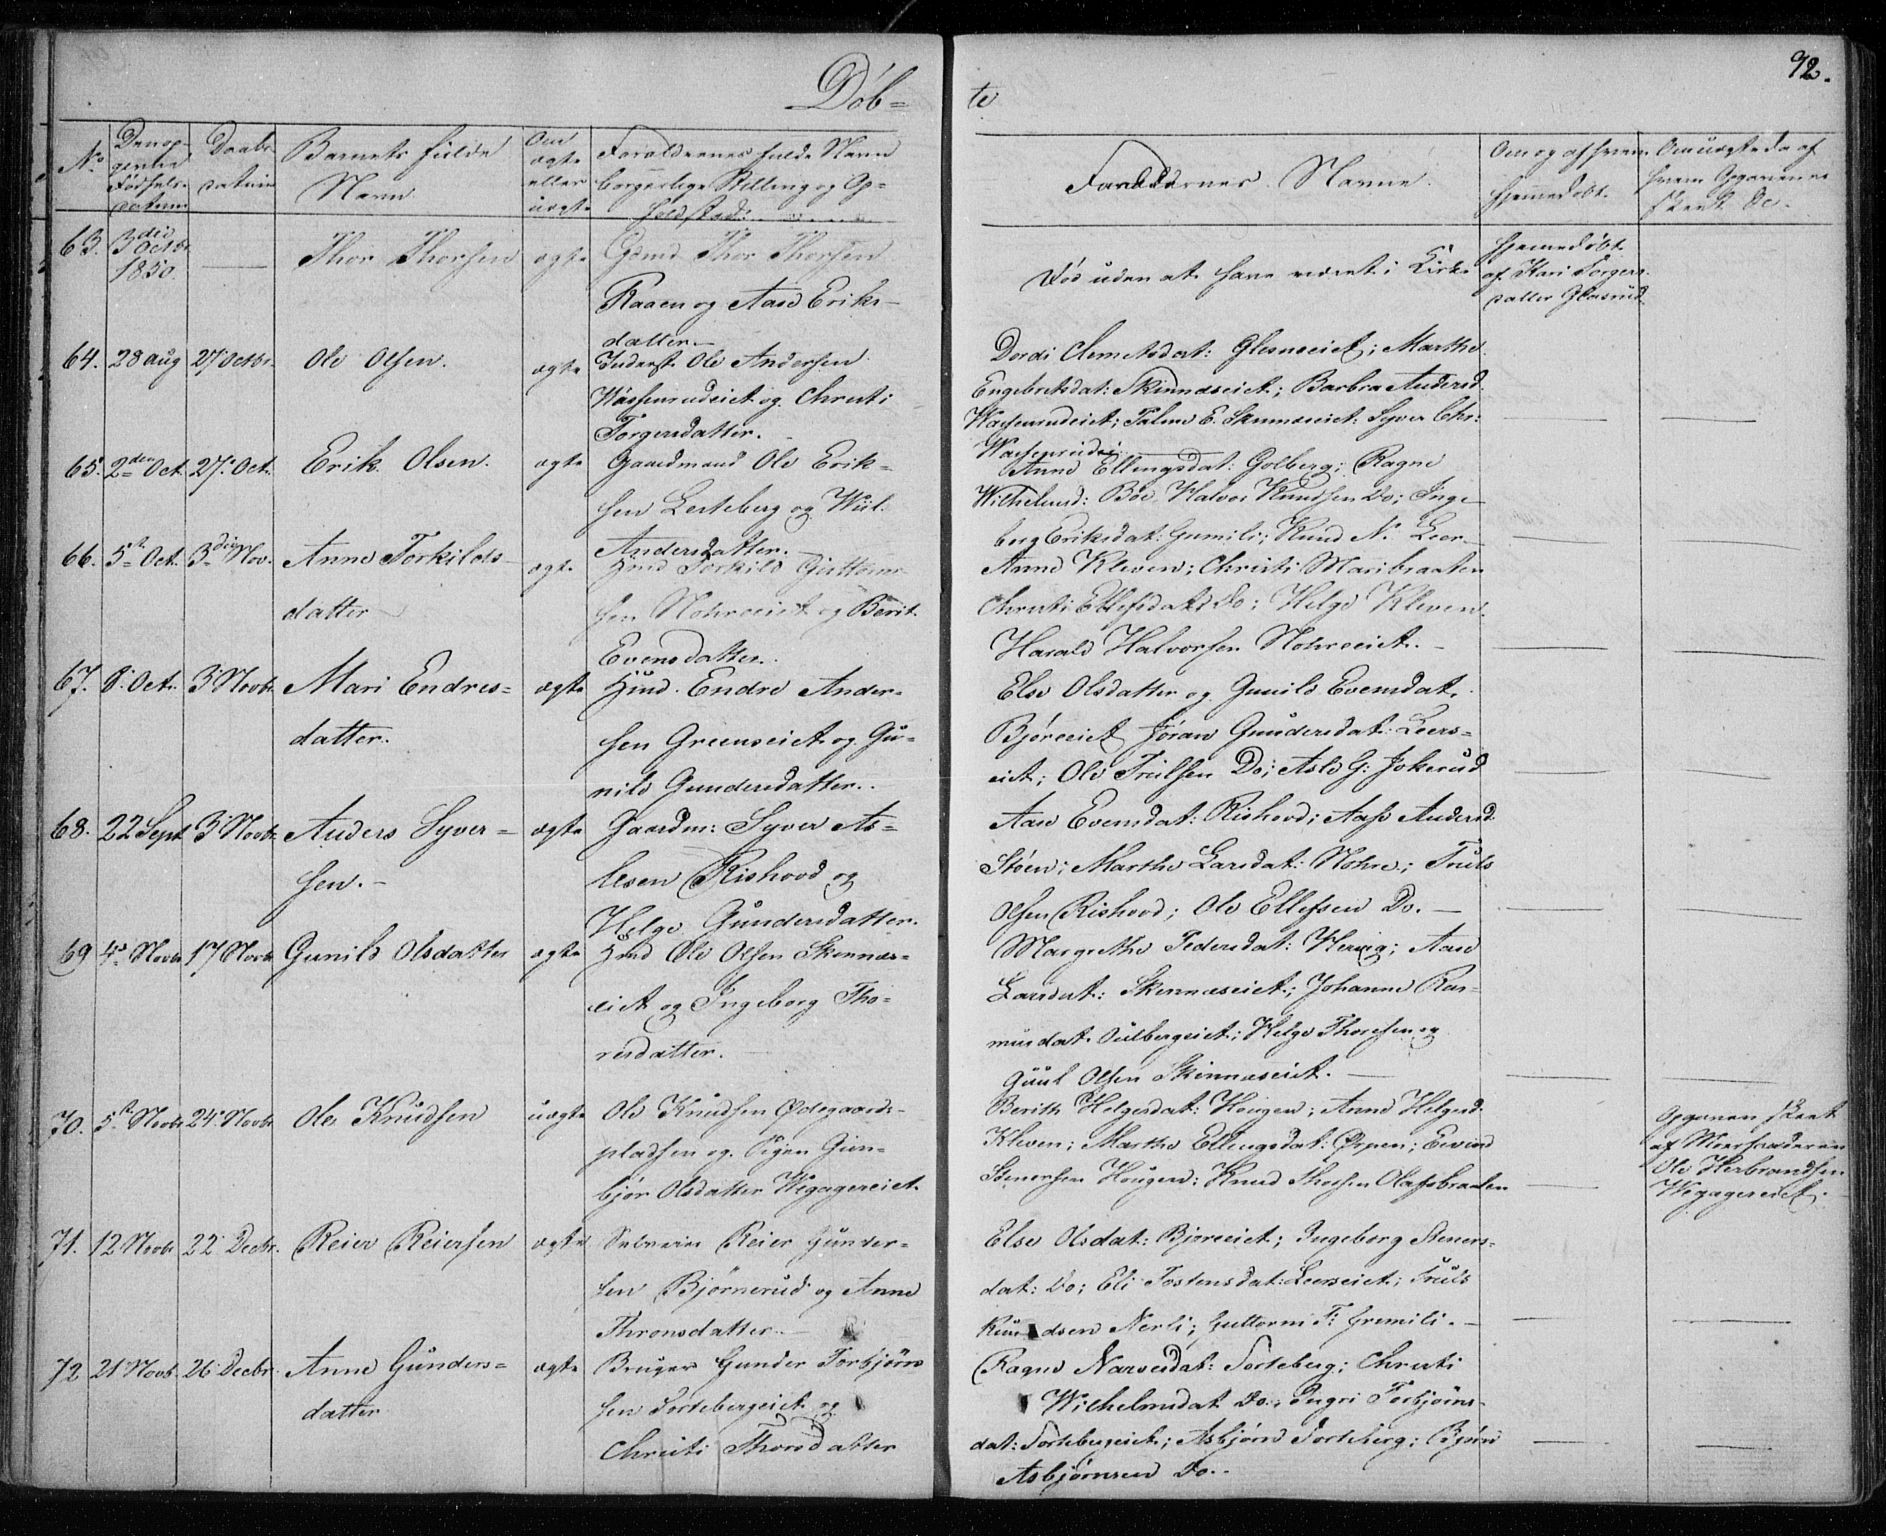 Döb=
te
92.
No
Den op-
givne
Fødsels-
datum
Daabs-
datum
Barnets fulde
Navn
Om
ægte
eller
uægte
Forældrenes fulde Navn
borgerlige Stilling og Op-
holdssted:
Faddernes Navne.
Om og af hvem
hjemmedøbt.
Om uægte da af
hvem Opgaven er
skeet &c.
63.
3die Octbr
1850.
Thor Thorsen
ægte
Gdmd Thor Thorsen
Raaen og Aase Eriks-
datter.
Død uden at have været i Kirke
Hjemmedøbt
af Kari Torgers
datter Glæsrud
64.
28 aug
27 Octbr.
Ole Olsen.
ægte
Inderst Ole Andersen
Wassenrudeiet og Christi
Torgersdatter.
Dordi Clemetsdat: Glesneeiet; Marthe
Engebretsdat: Skinnæseiet; Barbra Andersd.
Wassenrudeiet; Palme E. Skinnæseiet: Syver Chr:
Wassenrudei
65.
2den Oct.
27. Oct.
Erik Olsen.
ægte
Gaardmand Ole Erik-
sen Lesteberg og
Andersdatter.
Anne Ellingsdat: Golberg; Ragne
Wilhelmsd: Böe, Halvor Knudsen Do; Inge-
berg Eriksdat: Gumili; Knud N. Leer
66.
5te Oct.
3die Nov.
Anne Torkilds-
datter
ægte
Hmd Torkild Guttorm-
sen Nohreeiet og Berit
Evensdatter.
Anne Kleven; Christi Maribraaten
Christi Ellefsdat: Do; Helge Kleven
Harald Halvorsen Nohreeiet.
67.
8. Oct.
3 Novbr
Mari Endres=
datter.
ægte
Hmd. Endre Ander-
sen Greenseiet og Gu=
nild Gundersdatter.
Else Olsdatter og Gunild Evensdat.
Björeeiet Jöran Gundersdat: Leers=
eiet; Ole Trulsen Do; Asle G: Jokerud
68.
22 Sept
3 Novbr
Anders Syver=
sen.
ægte
Gaardm: Syver As=
lesen Rishovd og
Helge Gundersdatter.
Aase Evensdat: Rishovd; Aase Andersd.
Stöen; Marthe Larsdat: Nohre; Truls
Olsen Rishovd; Ole Ellefsen Do.
69
4de Novbr
17 Novbr
Gunild Olsdatter
ægte
Hmd Ole Olsen Skinnæs=
eiet og Ingeborg Tho=
resdatter.
Margrethe Pedersdat: Hervig; Aase
Larsdat: Skinnæseiet; Johanne Ras=
musdat. Gulbergeiet; Helge Thoresen og
Guul Olsen Skinnæseiet.
70.
5te Novbr
24. Novbr
Ole Knudsen
uægte
Ole Knudsen Ødegaards-
pladsen og Pigen Gun-
björ Olsdatter Wegagereiet.
Berith Helgesdat: Hougen; Anne Helgesd.
Kleven; Marthe Ellingsdat: Ørpen; Evend
Stenersen Hougen; Knud Thorsen Olafsbraaten
Opgaven skeet
af Moerfaderen
Ole Herbrandsen
Wegagereiet.
71.
12 Novbr
22 Decbr.
Reier Reiersen
ægte
Selveier Reier Gunder=
sen Björnerud og Anne
Thronsdatter.
Else Olsdat: Björeeiet; Ingeborg Steners=
dat: Do; Eli Tostensdat: Leerseiet; Truls
Knudsen Nerli; Guttorm T: Gremili.
72
21 Novb.
26 Decbr.
Anne Gunders=
datter
ægte
Bruger Gunder Torbjörn-
sen Sortebergeiet og
Christi Thorsdatter
Ragne Narvesdat: Sorteberg; Christi
Wilhelmsdat Do.; Ingri Torbjörns-
dat: Sortebergeiet; Asbjörn Sorteberg; Björn
Asbjörnsen Do.